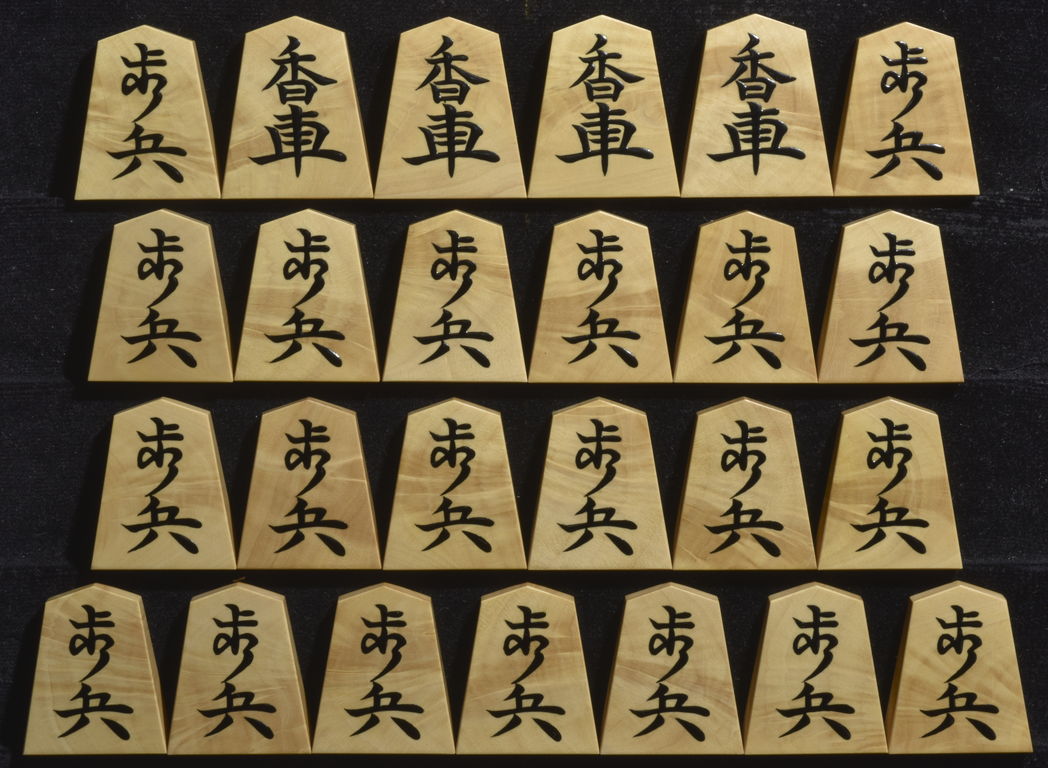 歩兵 香車 香車 香車 香車 歩兵
歩兵 歩兵 歩兵 歩兵 歩兵 歩兵
歩兵 歩兵 歩兵 歩兵 歩兵 歩兵
歩兵 歩兵 歩兵 歩兵 歩兵 歩兵 歩兵